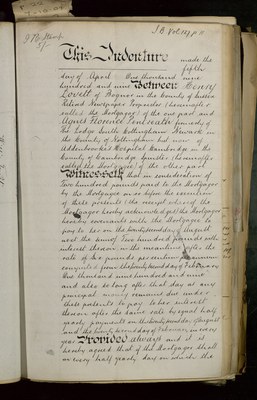 This Indenture made the fifth
day of April One thousand nine
hundred and nine Between Henry
Lovell of Bognor in the County of Sussex
Retired Newspaper Proprietor (hereinafter
called the Mortgagor) of the one part and
Agnes Florence formerly of
The Lodge South Collingham Newark in
the County of Nottingham but now of
Addenbrookes Hospital Cambridge in the
County of Cambridge Spinster (hereinafter
called the Mortgagee) of the other part
Witnesseth that in consideration of
Two hundred pounds paid to the Mortgagor
by the Mortgagee on or before the execution
of these presents (the receipt whereof the
Mortgagor hereby acknowledges) the Mortgagor
hereby covenants with the Mortgagee to
pay to her on the day of August
next the sum of Two hundred pounds with
interest thereon in the meantime after the
rate of pounds per centum per annum
computed from the day of February
One thousand nine hundred and nine
and also so long after that day as any
principal money remains due under
these presents to pay to her interest
thereon after the same rate by equal half
yearly payments on the day of August
and the day of February in every
year Provided always and it is
hereby agreed that if the Mortgagor shall
on every half yearly day on which the